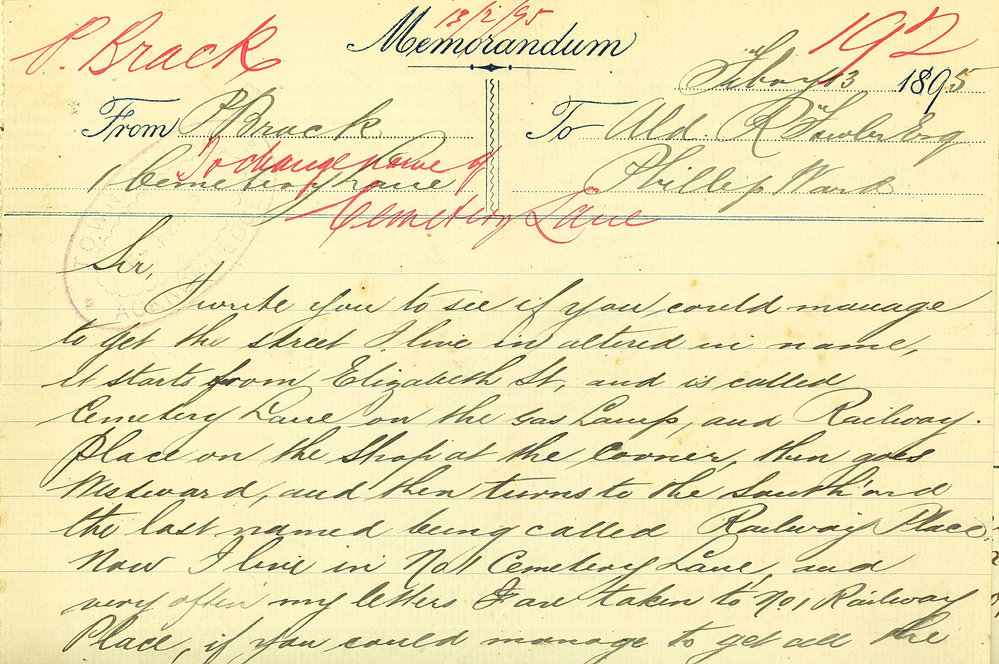 13/2/95
P. Brack Memorandum 192
Feby 13 1895
From P Brack To Ald. R Fowler Esq
To change name of
1 Cemetery Lane Phillip Ward
Cemetery Lane
Sir,
I write you to see if you could manage
to get the street I live in altered in name,
it starts from Elizabeth St, and is called
Cemetery Lane on the Gas Lamp, and Railway
Place on the Shop at the Corner, then goes
Westward, and then turns to the South'ard
the last named being called Railway Place.
Now I live in No 1 Cemetery Lane, and
very often my letters are taken to No 1 Railway
Place, if you could manage to get all the